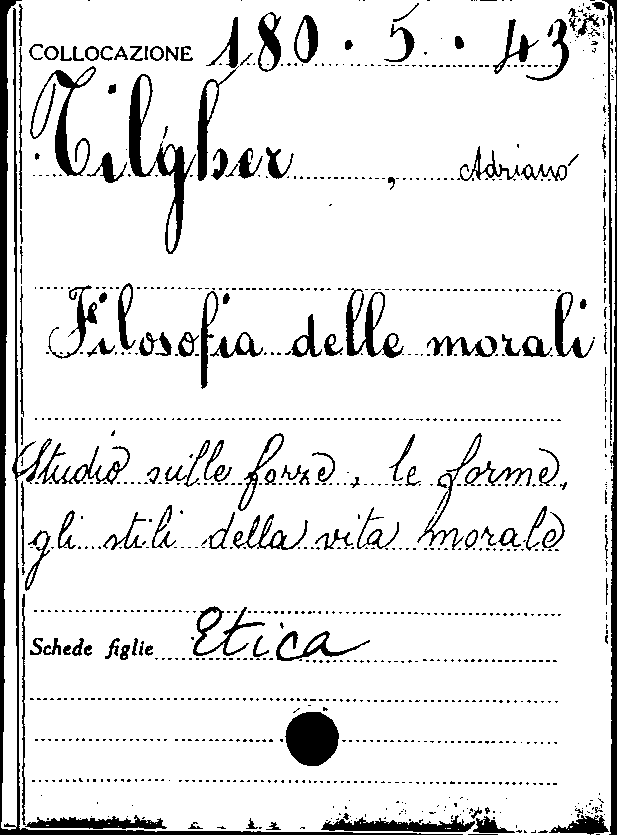 COLLOCAZIONE 180.5.43
Tilgher, Adriano
Filosofia delle morali
Studio sulle forze, le forme,
gli stili della vita morale
Schede figlie Etica